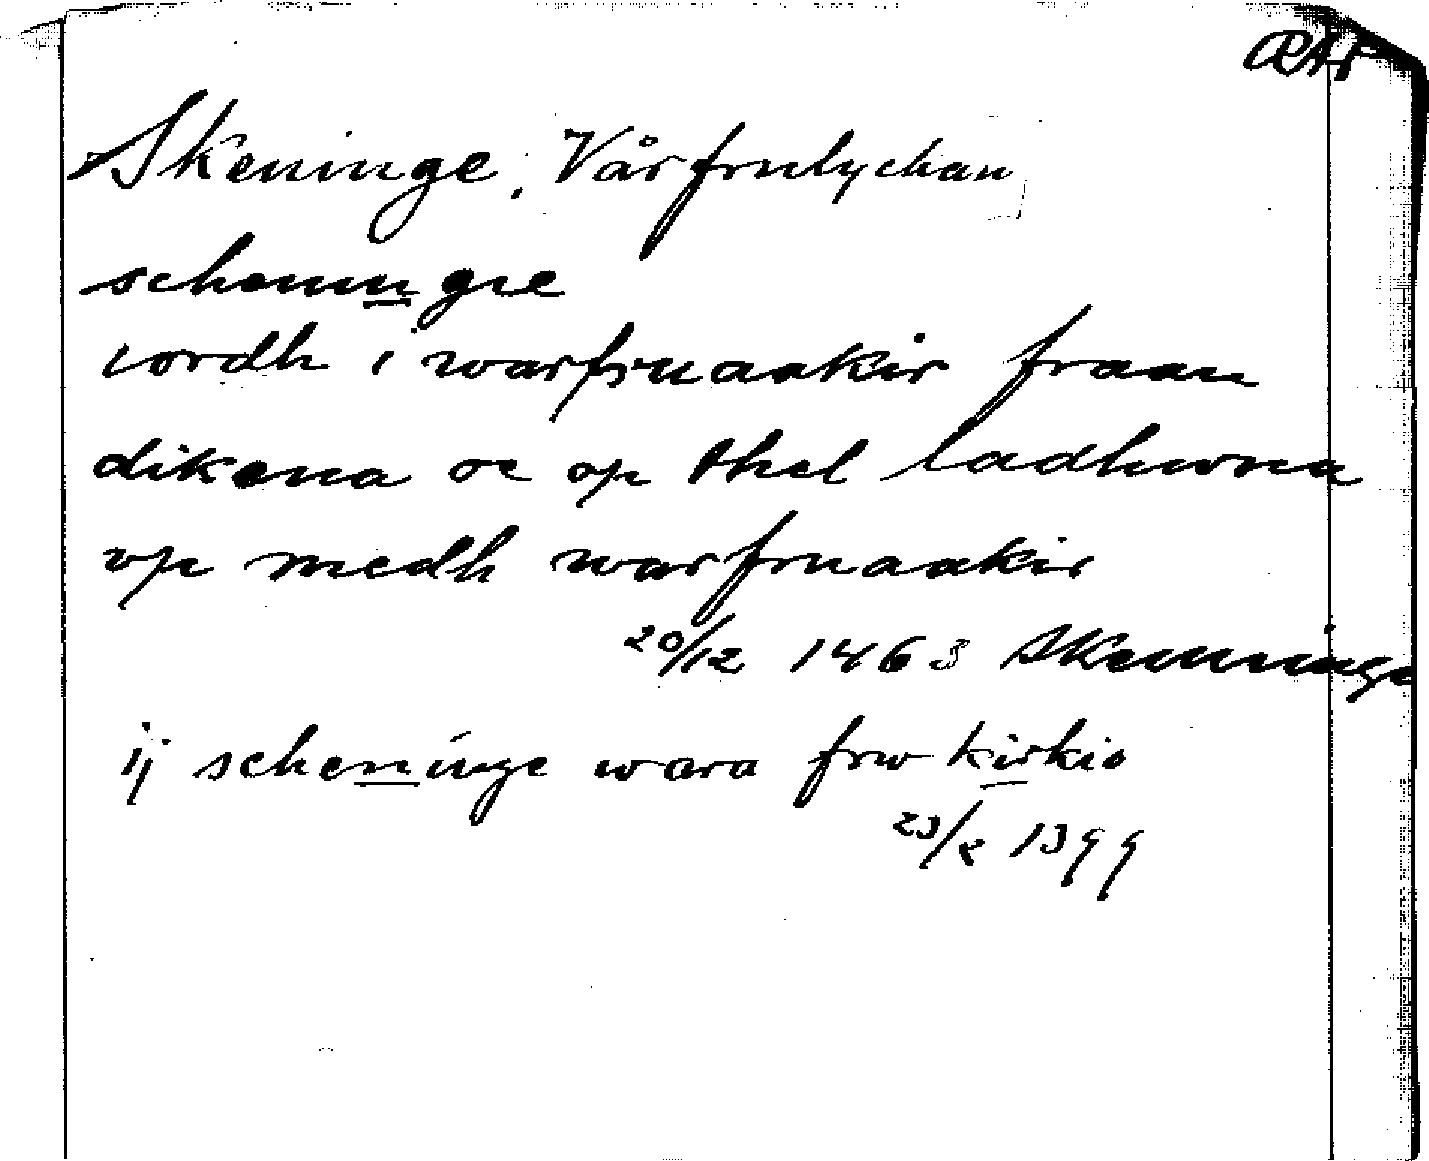 Skeninge, Vårfrulyckan
scheningæ
iordh i warfruaakir fraan
dikena oc op thel ladhwna
op medh warfruaakir
20/12 1463 Skeninge
ij scheninge wara frw kirkio
1399